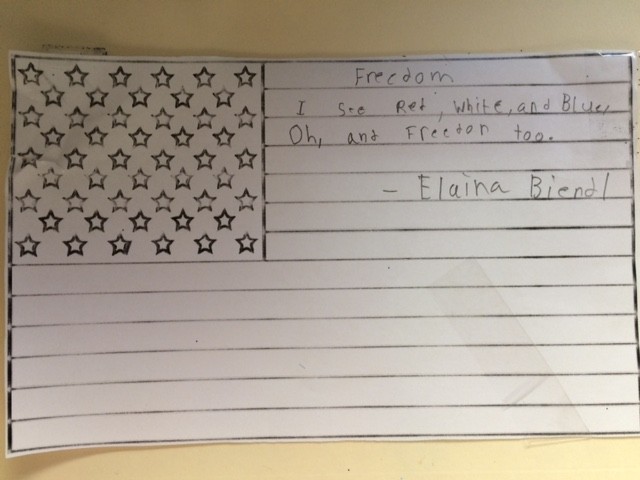 Freedom
I see Red, white, and Blue,
Oh, and Freedom too.
- Elaina Biendl